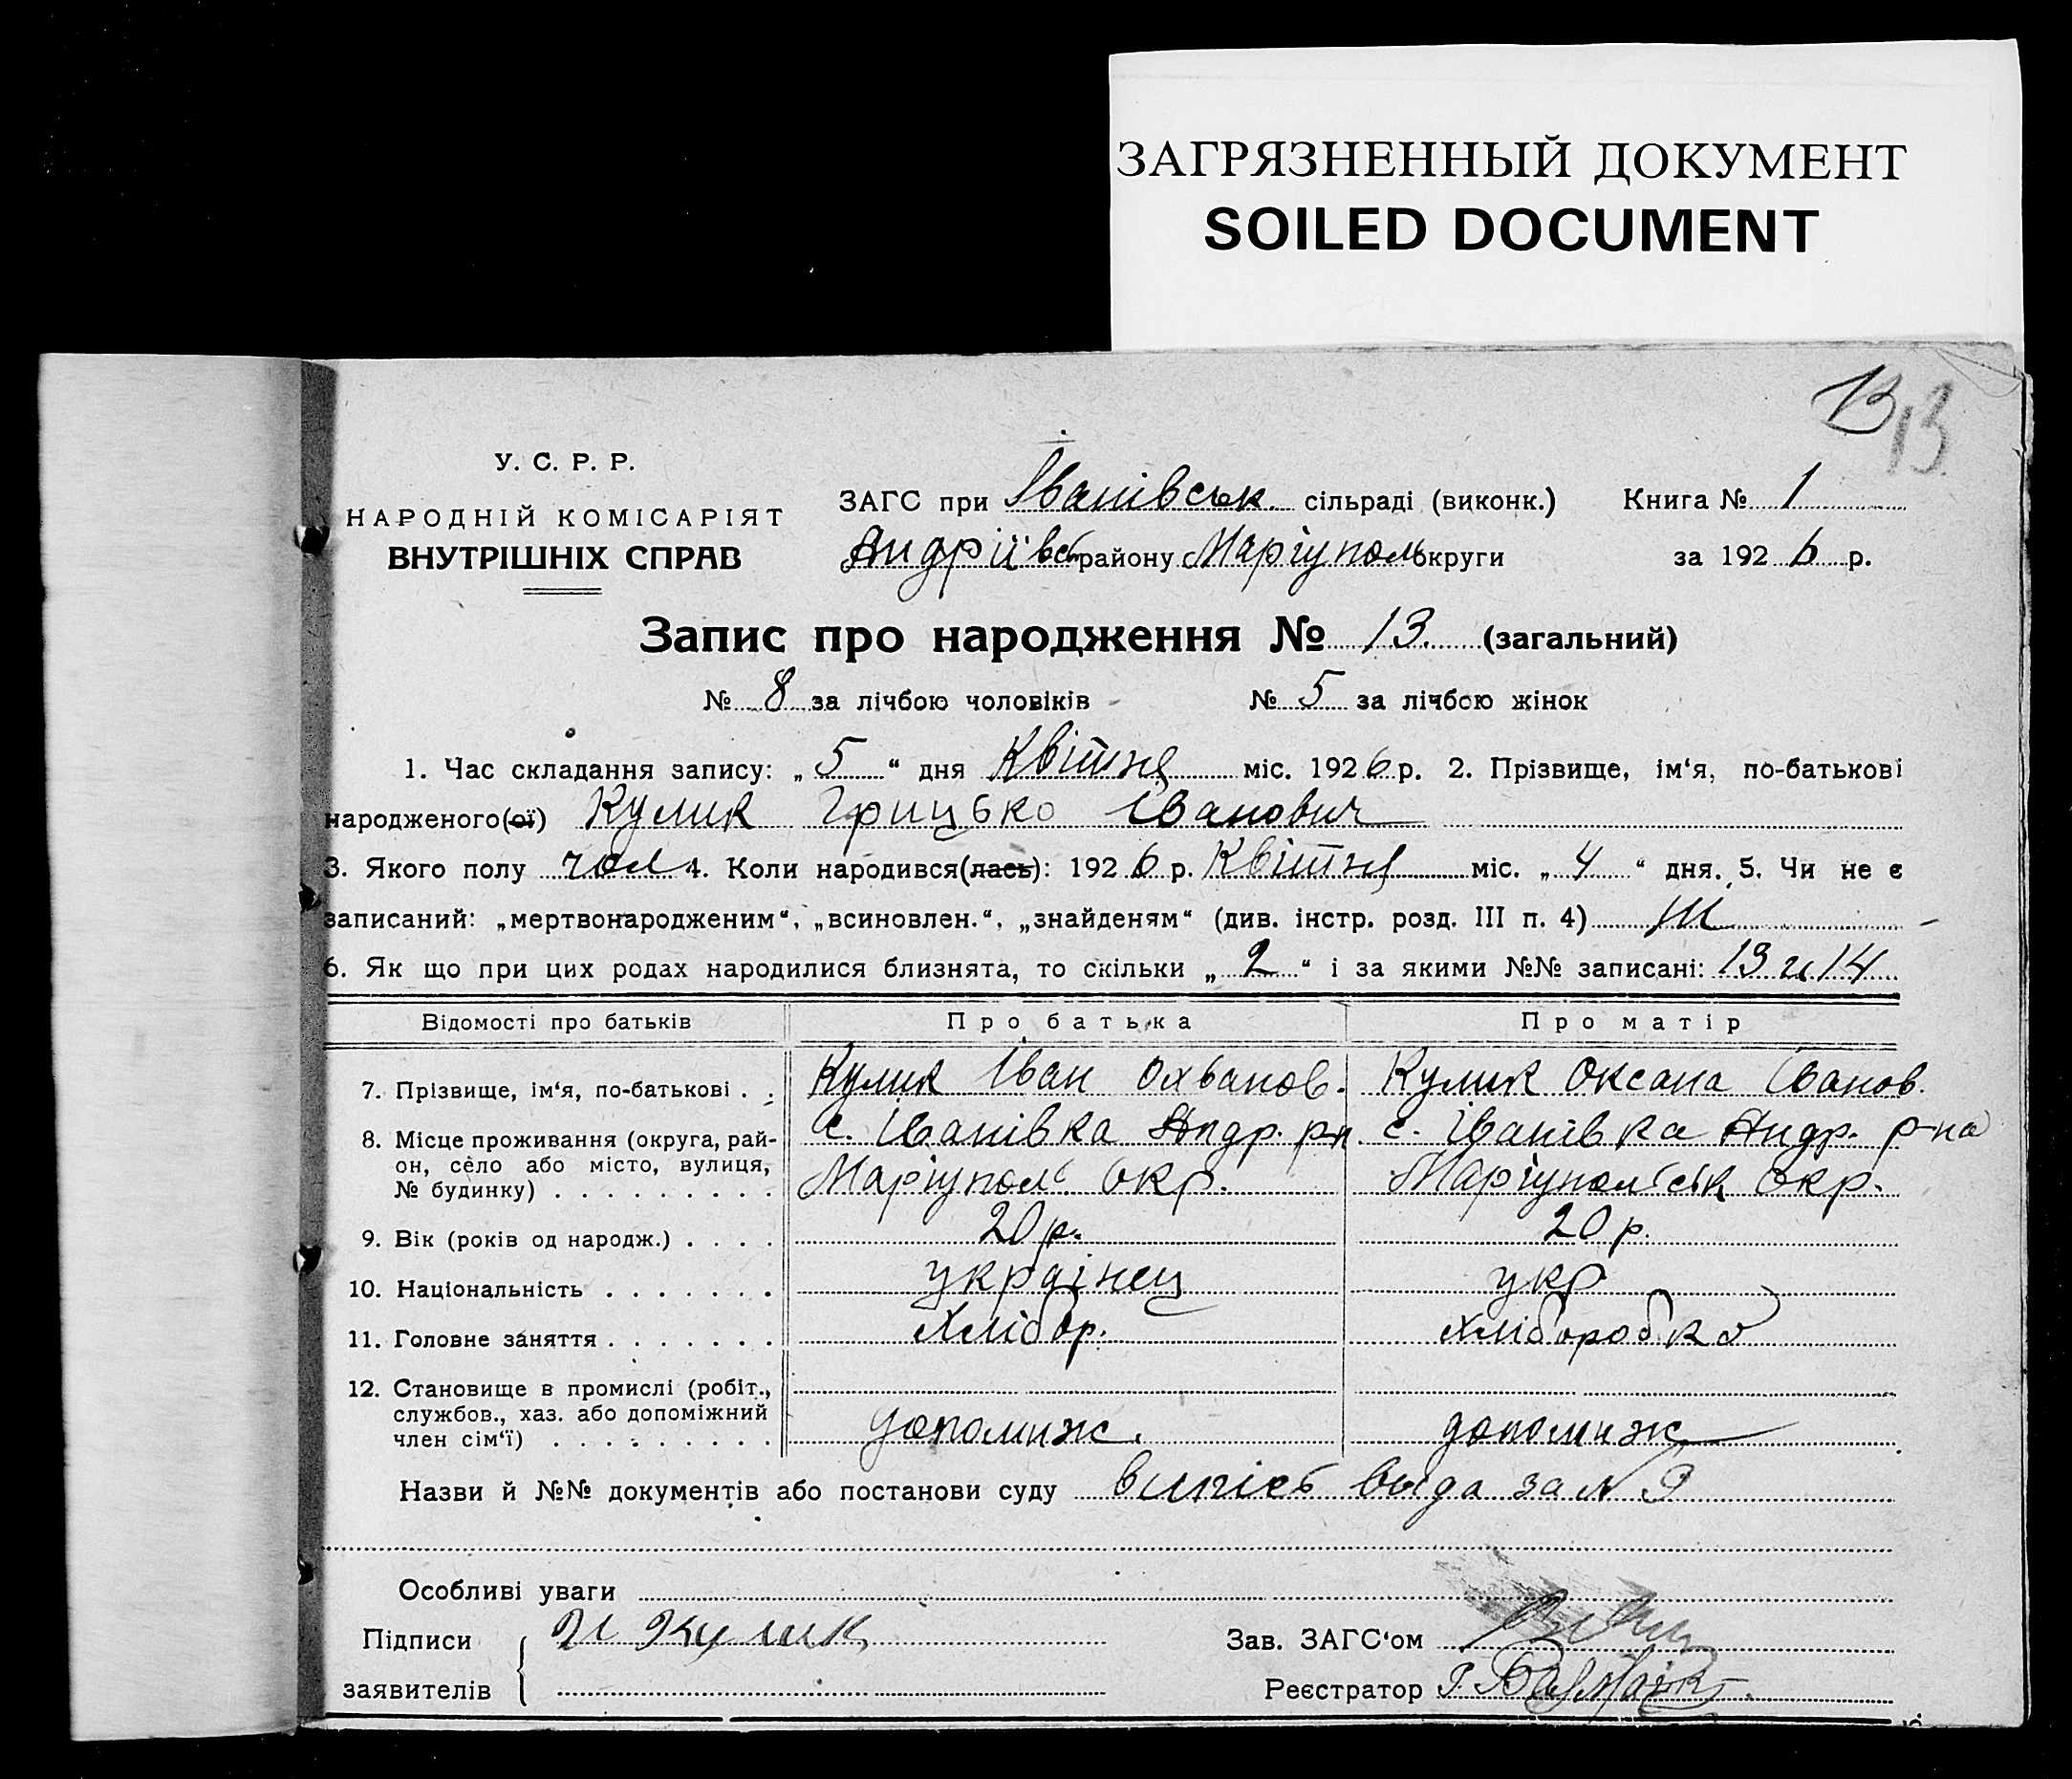 ЗАГРЯЗНЕННЫЙ ДОКУМЕНТ
SOILED DOCUMENT
13 13
У. С. Р. Р.
НАРОДНІЙ КОМІСАРІЯТ
ВНУТРІШНІХ СПРАВ
ЗАГС при Іванівськ. сільраді (виконк.) Книга № 1
Андріївс району Маріуполь округи за 1926 р.
Запис про народження № 13. (загальний)
№ 8 за лічбою чоловіків № 5 за лічбою жінок
1. Час складання запису: „5“ дня Квітня міс. 1926 р. 2. Прізвище, ім‘я, по-батькові
народженого(ої) Кулик Грицько Іванович
3. Якого полу чол 4. Коли народився(лась): 1926 р. Квітня міс. „4“ дня. 5. Чи не є
записаний: „мертвонародженим“, „всиновлен.“, „знайденям“ (див. інстр. розд. III п. 4)
6. Як що при цих родах народилися близнята, то скільки „2“ і за якими №№ записані: 13 и 14
Відомості про батьків Про батька Про матір
7. Прізвище, ім‘я, по-батькові . . Кулик Іван Охванов. Кулик Оксана Іванов.
8. Місце проживання (округа, рай- с. Іванівка Андр. рн. с. Іванівка Андр. р-на
он, село або місто, вулиця, Маріуполь окр. Маріупольськ окр.
№ будинку) . . . . . . . . .
9. Вік (років од народж.) . . . . 20 р. 20 р.
10. Національність . . . . . . . українец укр
11. Головне заняття . . . . . . . хлібор. хліборобка
12. Становище в промислі (робіт.,
службов., хаз. або допоміжний
член сім‘ї) . . . . . . . . . допомиж. допомиж
Назви й №№ документів або постанови суду випісь выда за №
Особливі уваги
Підписи И Кулик Зав. ЗАГС‘ом
заявителів Реєстратор Г.